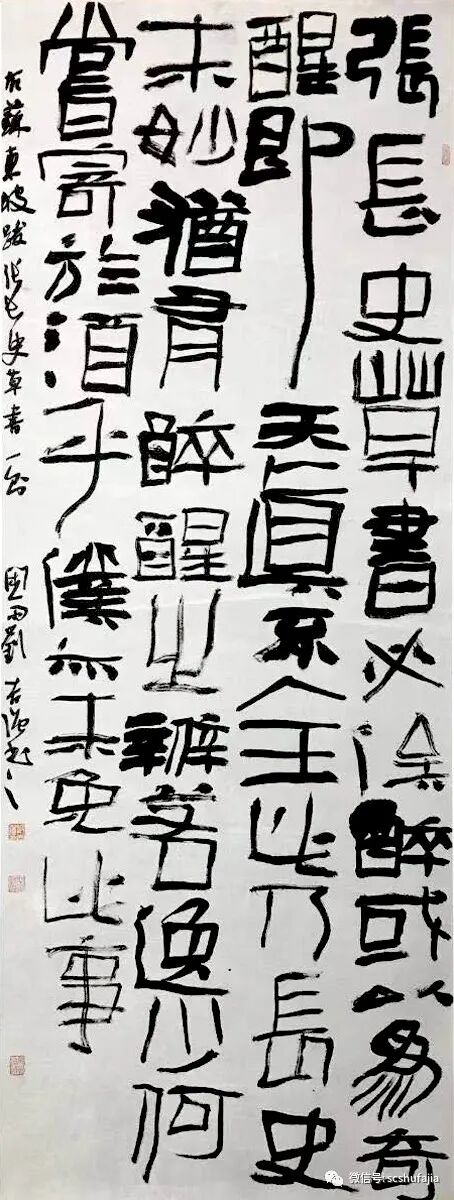 張長史草書必俟醉或以為奇
醒即天真不全此乃長史
未妙猶有醉醒之辨若逸少何
嘗寄於酒乎僕亦未免此事
右蘇東坡跋張長史草書一則 劉
微信号: scshufajia